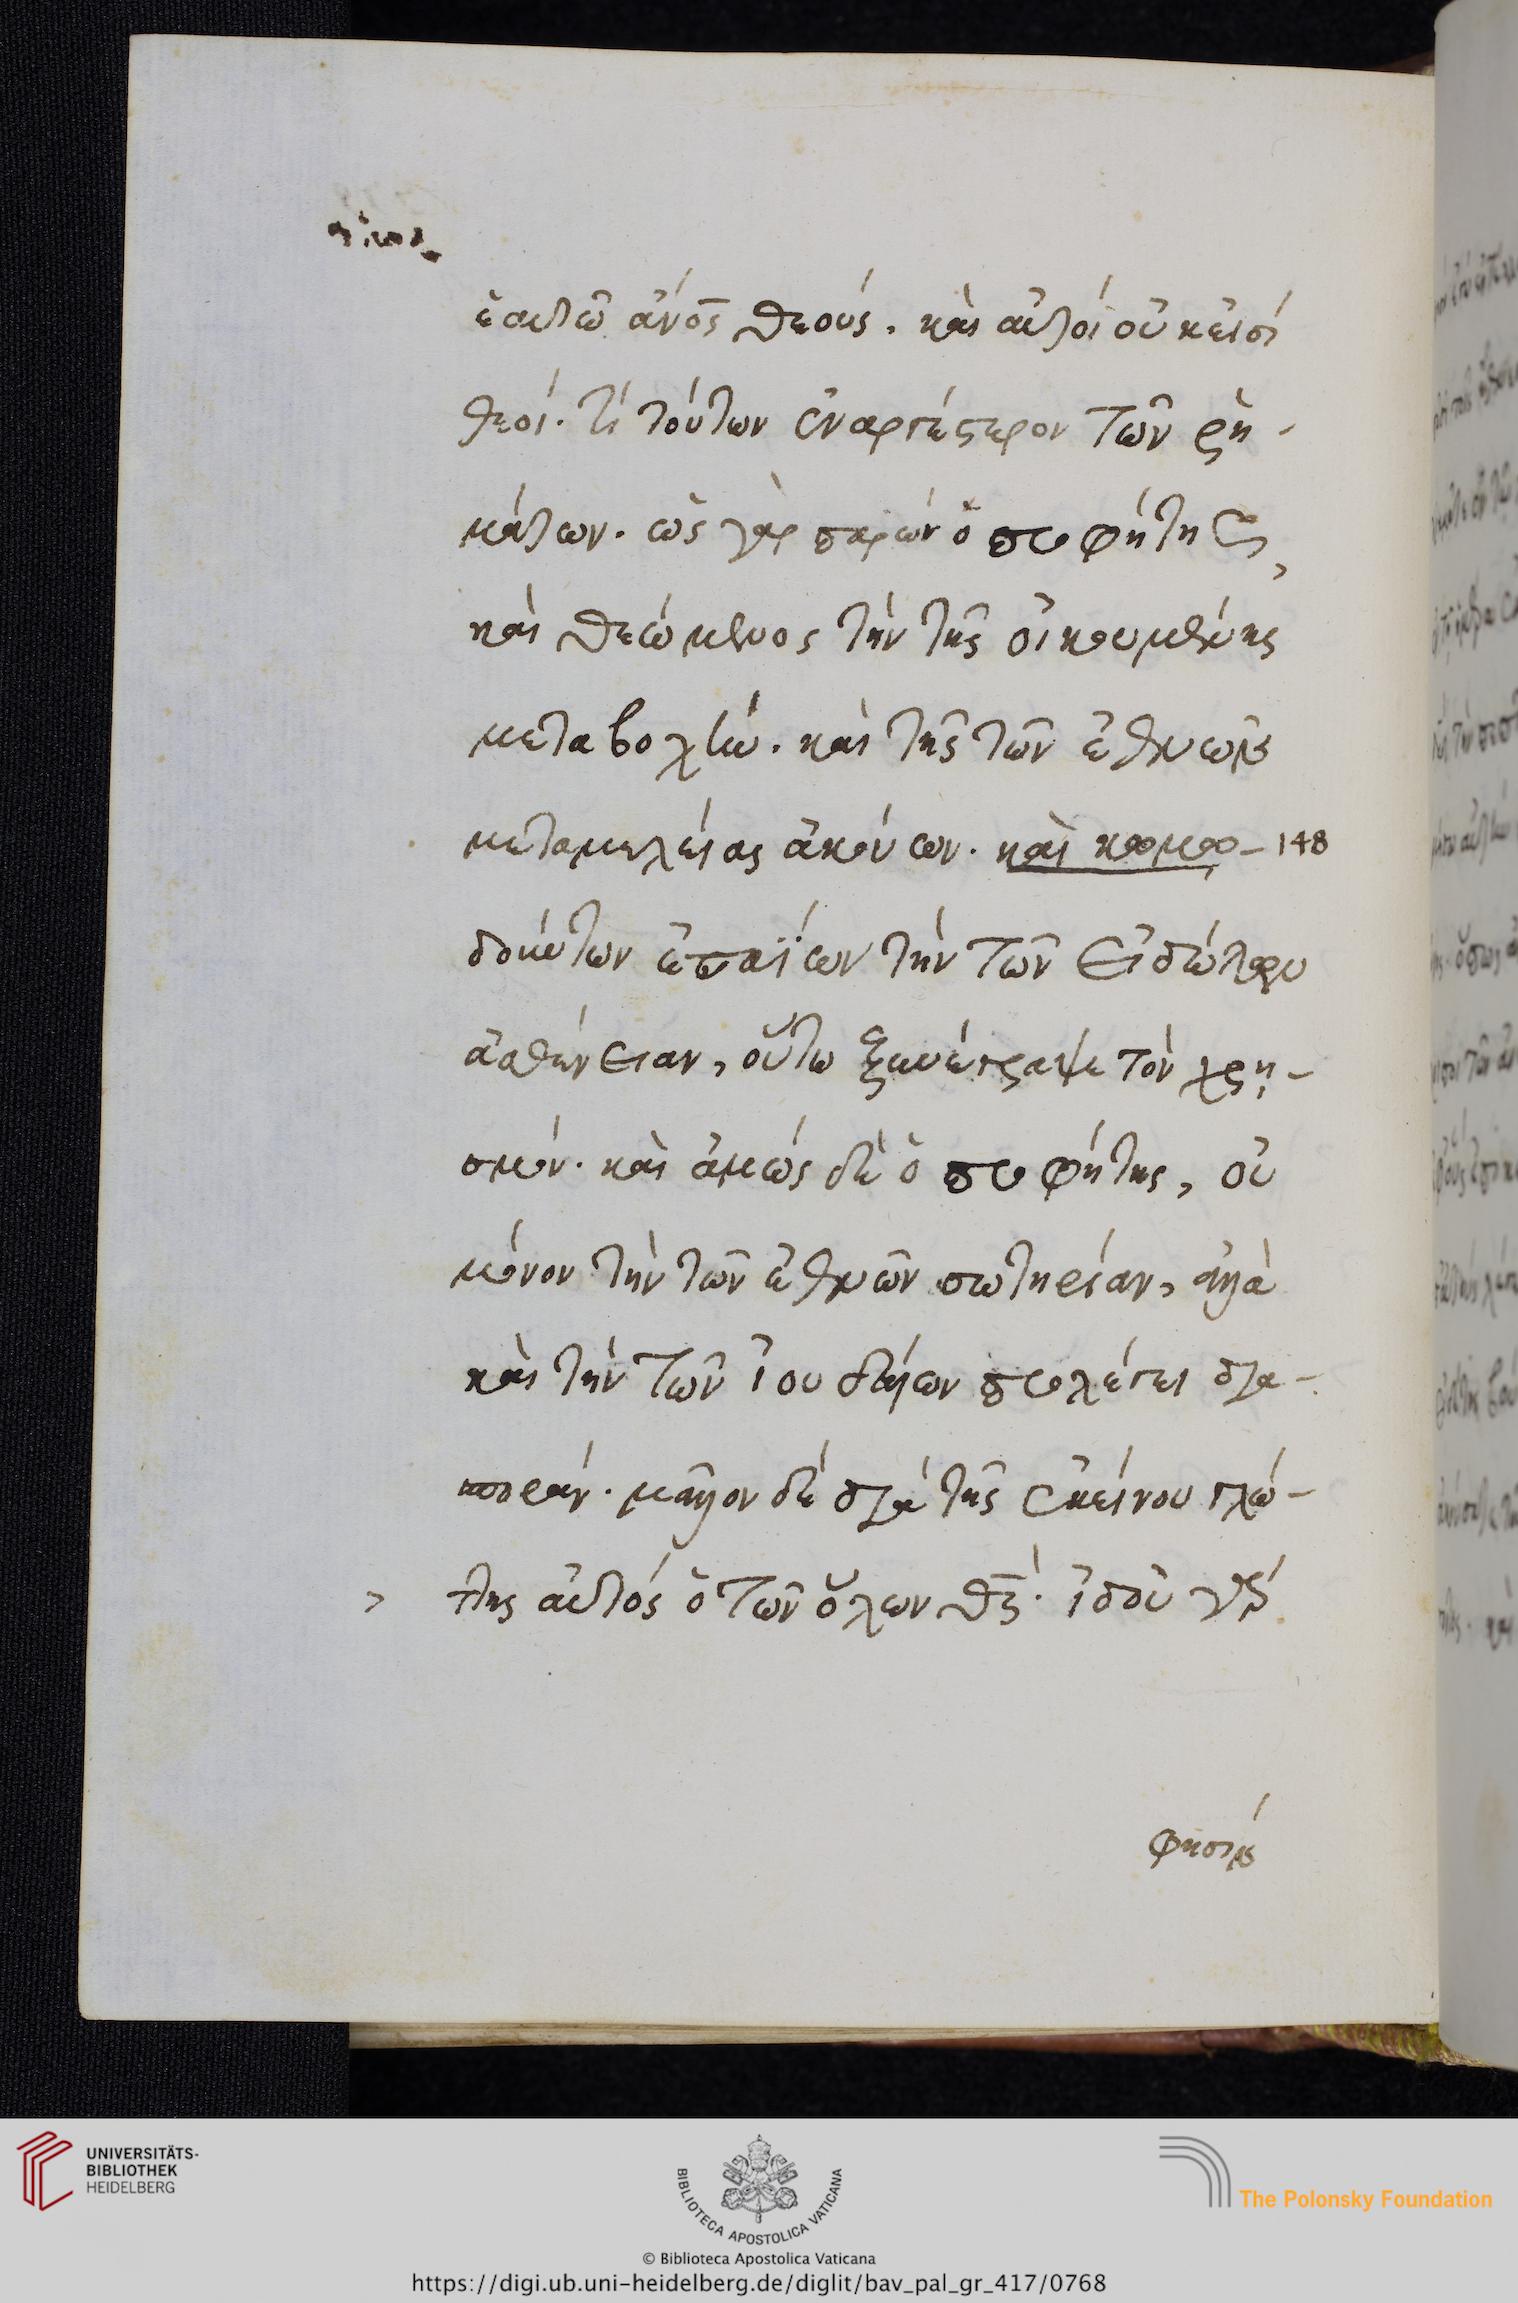 ἑαυτῶ ἄνος θεούς. καὶ αὐτοὶ οὔκ εἰσι
θεοί. τί τούτων ἐναργέστερον τῶν ῥη-
μάτων. ὡς γὰρ παρὼν ὁ προφήτης,
καὶ θεώμενος τὴν τῆς οἰκουμένης
μεταβολὴν. καὶ τῆς τῶν ἐθνῶν
μεταμελείας ἀκούων. καὶ κωμω- 148
δούντων ἐπαΐων τὴν τῶν εἰδώλων
ἀσθένειαν, οὕτω ξυνέγραψε τὸν χρη-
σμόν. καὶ ἀμὼς δὲ ὁ προφήτης, οὐ
μόνον τὴν τῶν ἐθνῶν σωτηρίαν, ἀλλὰ
καὶ τὴν τῶν ἰουδαίων προλέγει δια-
σποράν. μᾶλλον δὲ διὰ τῆς ἐκείνου γλώ-
> ττης αὐτὸς ὁ τῶν ὅλων θς. ἰδοὺ γὰρ
φησὶν
UNIVERSITÄTS-
BIBLIOTHEK
HEIDELBERG
BIBLIOTECA APOSTOLICA VATICANA
The Polonsky Foundation
© Biblioteca Apostolica Vaticana
https://digi.ub.uni-heidelberg.de/diglit/bav_pal_gr_417/0768